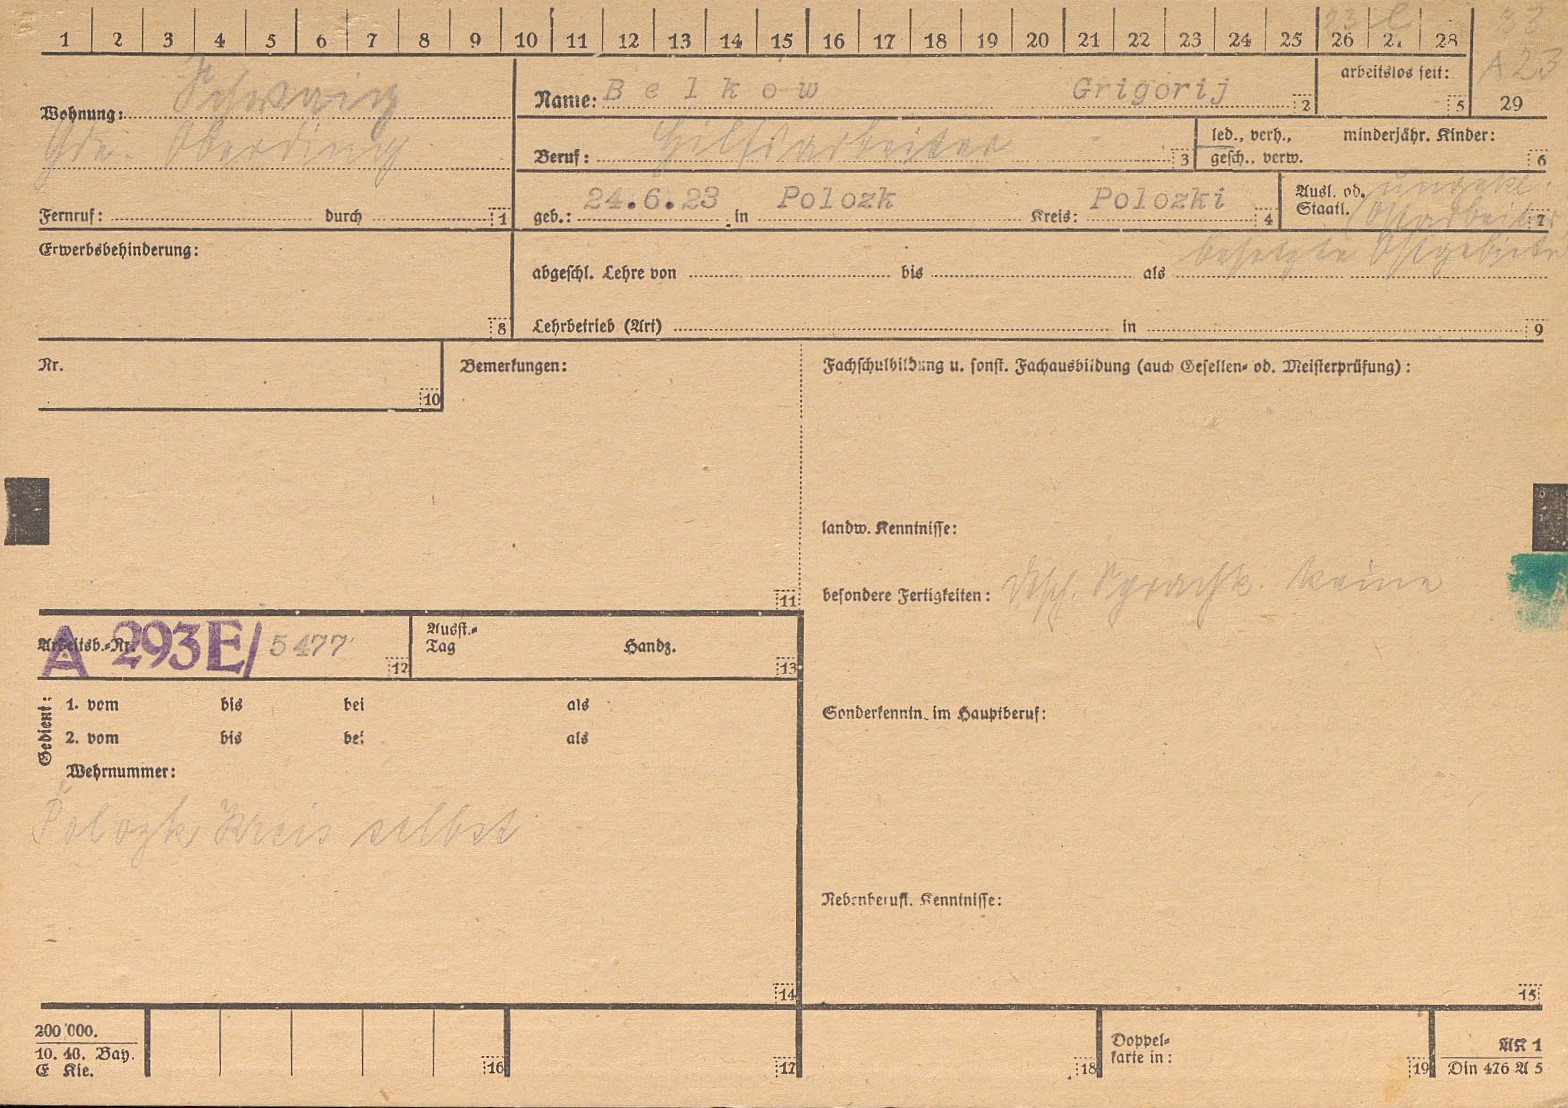 1 2 3 4 5 6 7 8 9 10 11 12 13 14 15 16 17 18 19 20 21 22 23 24 25 26 27 28
23
A 23
29
Wohnung: Schwaig
Gde. Oberding
Fernruf: durch 1
Name: Belkow Grigorij 2
arbeitslos seit: 5
Beruf: Hilfsarbeiter 3
led., verh., minderjähr. Kinder:
gesch., verw. 6
geb.: 24.6.23 in Polozk Kreis: Polozki 4
Ausl. od. ungekl.
Staatl. Ostarbeiter 7
besetzte Ostgebiete
Erwerbsbehinderung: 8
abgeschl. Lehre von bis als
Lehrbetrieb (Art) in 9
Nr. 10
Bemerkungen: 11
Fachschulbildung u. sonst. Fachausbildung (auch Gesellen- od. Meisterprüfung):
landw. Kenntnisse:
besondere Fertigkeiten: dtsch. Sprachk. keine
Arbeitsb.-Nr. A 293E/5477 12
Ausst.-
Tag Handz. 13
Gedient:
1. vom bis bei als
2. vom bis bei als
Wehrnummer:
Polozk Kreis selbst
14
Sonderkenntn. im Hauptberuf:
Nebenberufl. Kenntnisse:
15
200 000.
10. 40. Bay.
E Kie.
16 17 18
Doppel-
karte in: 19
AK 1
Din 476 A 5